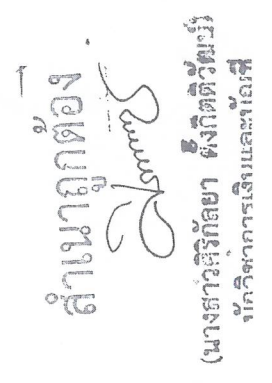 สำเนาถูกต้อง
(นางสาวศิริกัลยา ตั้งกิตติวัฒน์)
นักวิชาการเงินและบัญชี